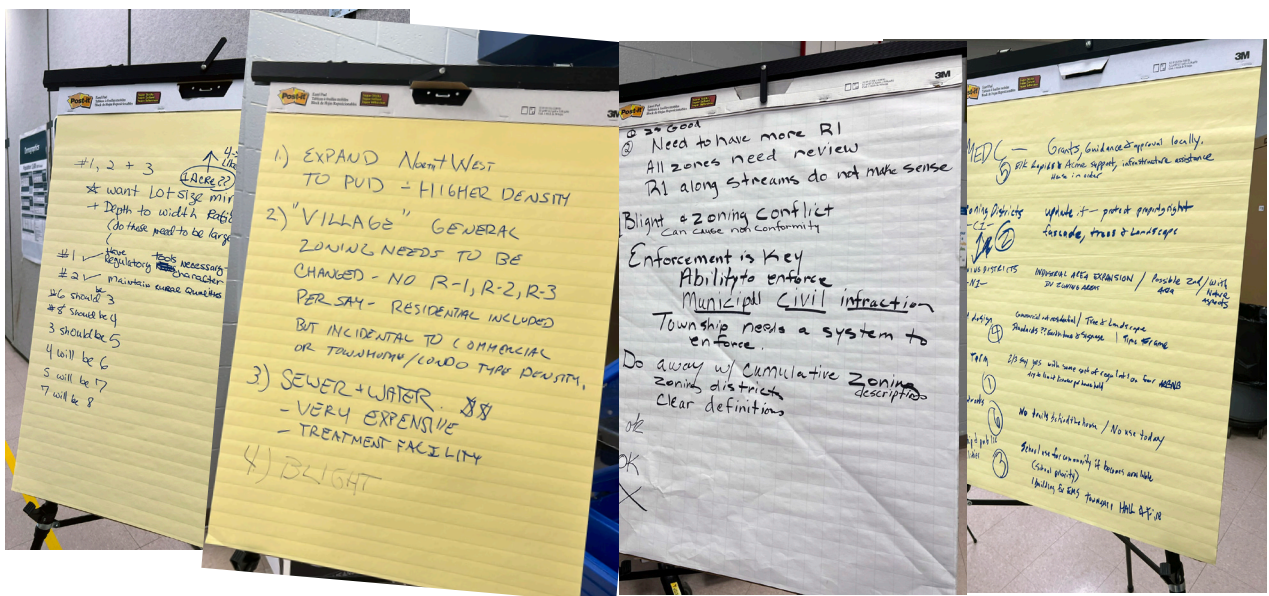 Post-it
#1, 2 + 3
1 Acre??
want Lot size min
+ Depth to width Ratio
(do these need to be large
#1 ✓ Have tools necessary
Regulatory character
#2 ✓ maintain rural Qualities
#6 should be 3
#8 should be 4
3 should be 5
4 will be 6
5 will be 7
7 will be 8
Post-it
3M
1.) EXPAND NorthWest
TO PUD - HIGHER DENSITY
2.) "VILLAGE" GENERAL
ZONING NEEDS TO BE
CHANGED - NO R-1, R-2, R-3
PER SAY - RESIDENTIAL INCLUDED
BUT INCIDENTAL TO COMMERCIAL
OR TOWNHOME/CONDO TYPE DENSITY.
3.) SEWER + WATER. $$
- VERY EXPENSIVE
- TREATMENT FACILITY
4.) BLIGHT
Post-it
3M
① is Good
② Need to have more R1
All zones need review
R1 along streams do not make sense
Blight & Zoning Conflict
Can cause non conformity
Enforcement is Key
Ability to enforce
Municipal Civil infraction
Township needs a system to
enforce.
Do away w/ cumulative Zoning
descriptions
Zoning districts
Clear definitions
ok
OK
3M
MEDC - Grants, Guidance & approval locally.
⑤ Elk Rapids & Acme support, infrastructure assistance
oning Districts update it - protect property right
-C1- ② fascade, trees & Landscape
DISTRICTS INDUSTRIAL AREA EXPANSION / Possible 2nd / with
-N1- IN ZONING AREAS AREA Nature
aspects
design Commercial & residential / Tree & Landscape
④ Standards ?? & Signage | Time Frame
Term 2/3 say yes with some sort of regulation for AIRBNB
①
⑥ No trails to find the house / No use today
public School use for community if becomes available
③ (school priority)
building for EMS township HALL & Fire